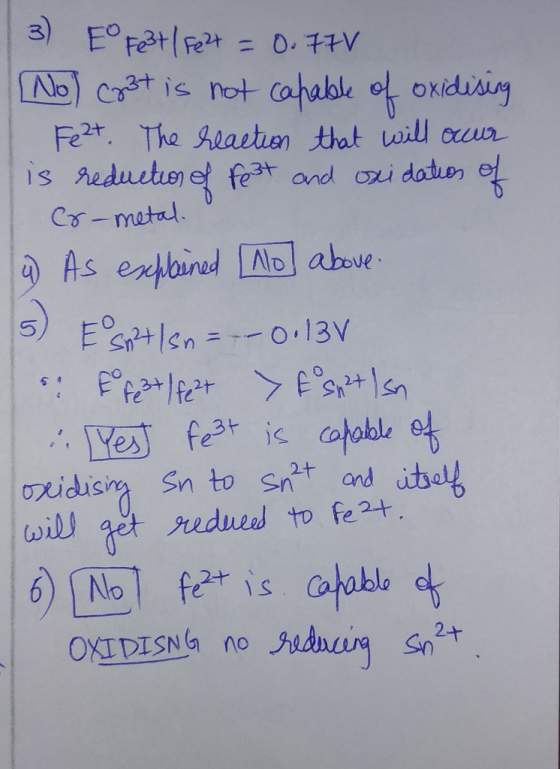 3) E° Fe3+/Fe2+ = 0.77V
No Cr3+ is not capable of oxidising
Fe2+. The reaction that will occur
is reduction of Fe3+ and oxidation of
Cr-metal.
4) As explained No above.
5) E°Sn2+/Sn = -0.13V
∵ E°Fe3+/Fe2+ > E°Sn2+/Sn
∴ Yes Fe3+ is capable of
oxidising Sn to Sn2+ and itself
will get reduced to Fe2+.
6) No Fe2+ is capable of
OXIDISNG no reducing Sn2+.